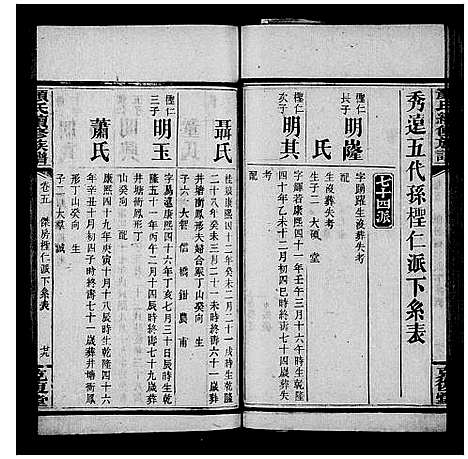 秀遠五代孫檉仁派下糸表
七十四派
檉仁
長子
明嶐
字躊躍生沒葬失考
生子二 大碩 堂
檉仁
次子
明其
字輝若康熙四十一年壬午三月十六年時生乾隆
四十年乙未十二月初四巳時終壽七十四歲葬失
考 配
聶氏
桂康熙四十二年癸未二月二十一戌時生乾隆
二十八年癸未三月二十一未時終壽六十一歲葬
井塘衝鳳形夫婦合冢丁山癸向 生
子六 大智 信 橋 鉗 農 甫
檉仁
三子
明玉
字易遠康熙四十六年丁亥七月三十日辰時生乾
隆五十一年丙午二月十四辰時終壽七十九歲葬
井塘衝鳳形丁山癸向 配
蕭氏
康熙四十九年庚寅十月十八辰時生乾隆四十六
年辛丑十月初四子時終壽七十一歲葬井塘衝鳳
形丁山癸向 生
子二 大羣 誠
顏氏續修族譜
卷五
傑房檉仁派下糸表
廿九
克復堂